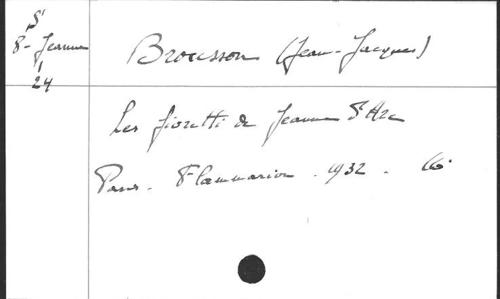 S
8- Jeanne
24
Brousson (Jean-Jacques)
Les fioretti de Jeanne d'Arc
Paris. Flammarion. 1932. 16°